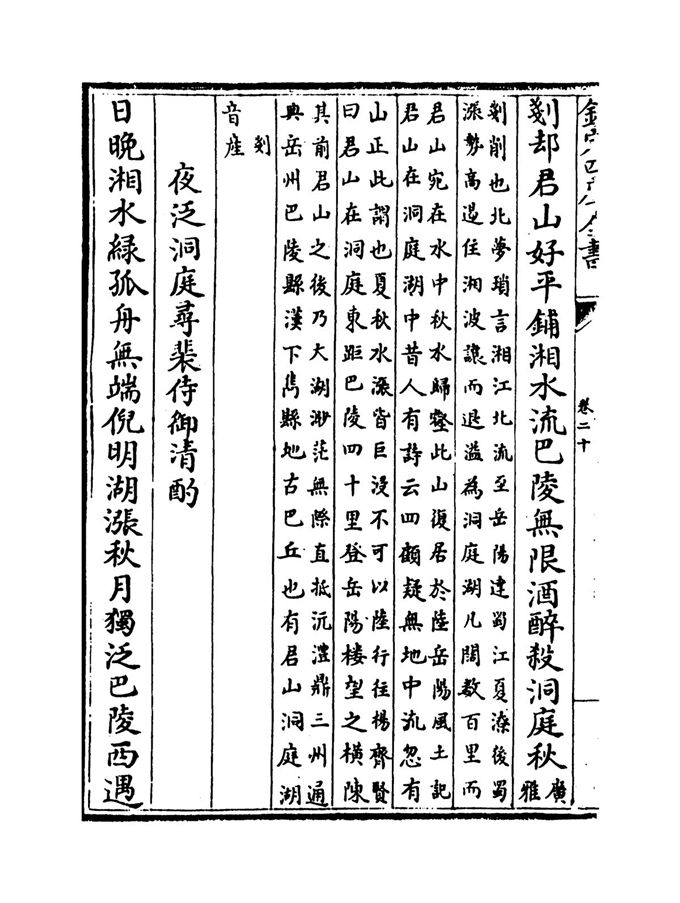 欽定四庫全書
卷二十
剗却君山好平鋪湘水流巴陵無限酒醉殺洞庭秋
廣
雅
剗削也北夢瑣言湘江北流至岳陽達蜀江夏潦後蜀
漲勢高遏住湘波讓而退溢為洞庭湖凡闊数百里而
君山宛在水中秋水歸壑此山復居於陸岳陽風土記
君山在洞庭湖中昔人有詩云四顧疑無地中流忽有
山正此謂也夏秋水漲皆巨浸不可以陸行往楊齊賢
曰君山在洞庭東距巴陵四十里登岳陽楼望之横陳
其前君山之後乃大湖渺茫無際直抵沅澧鼎三州通
典岳州巴陵縣漢下雋縣地古巴丘也有君山洞庭湖
剗
音産
夜泛洞庭尋裴侍御清酌
日晚湘水緑孤舟無端倪明湖漲秋月獨泛巴陵西遇